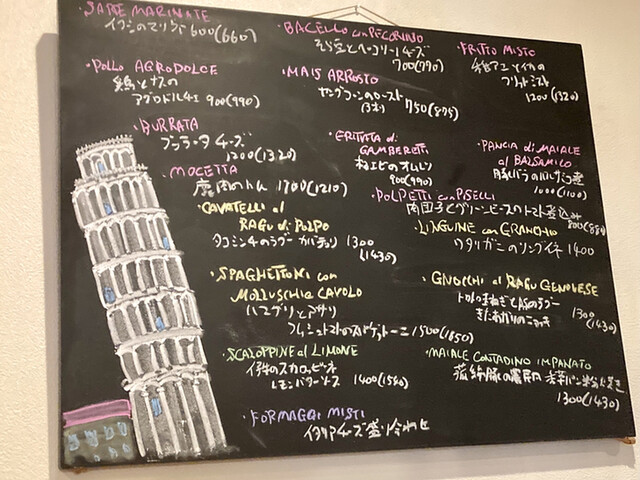 SARDE MARINATE
イワシのマリネ 600(660)
BACELLO con PECORINO
そら豆とペコリーノチーズ
700(770)
FRITTO MISTO
フリットミスト
1200(1320)
POLLO AGRODOLCE
鶏とナスの
アグロドルチェ 900(990)
MAIS ARROSTO
ヤングコーンのロースト
(3本) 750(825)
BURRATA
ブッラータチーズ
1200(1320)
FRITTATA di
GAMBERETTI
小エビのオムレツ
900(990)
PANCIA di MAIALE
al BALSAMICO
豚バラのバルサミコ煮
1000(1100)
MOCETTA
鹿肉の生ハム 1100(1210)
POLPETTI con PISELLI
肉団子とグリーンピースのトマト煮込み
800(880)
CAVATELLI al
RAGU di POLPO
タコミンチのラグー カバテッリ 1300
(1430)
LINGUINE con GRANCHIO
ワタリガニのリングイネ 1400
SPAGHETTONI con
MOLLUSCHI e CAVOLO
ハマグリとアサリ
フレッシュトマトのスパゲットーニ 1500(1650)
GNOCCHI al RAGU GENOVESE
きたあかりのニョッキ
1300
(1430)
SCALOPPINE al LIMONE
仔牛のスカロッピーネ
レモンバターソース 1400(1540)
MAIALE CONTADINO IMPANATO
1300(1430)
FORMAGGI MISTI
イタリアチーズ盛り合わせ